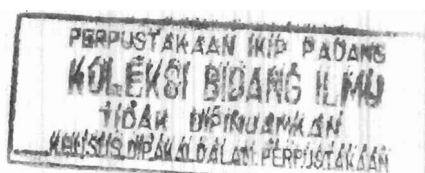 PERPUSTAKAAN IKIP PADANG
KOLEKSI BIDANG ILMU
TIDAK DIPINJAMKAN
KHUSUS DIPAKAI DALAM PERPUSTAKAAN